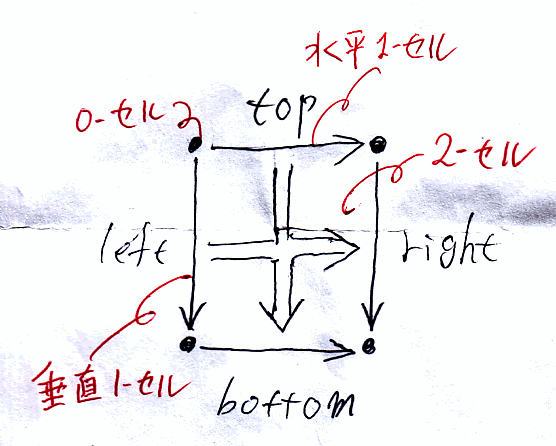 水平1-セル
0-セル
top
2-セル
left
right
垂直1-セル
bottom